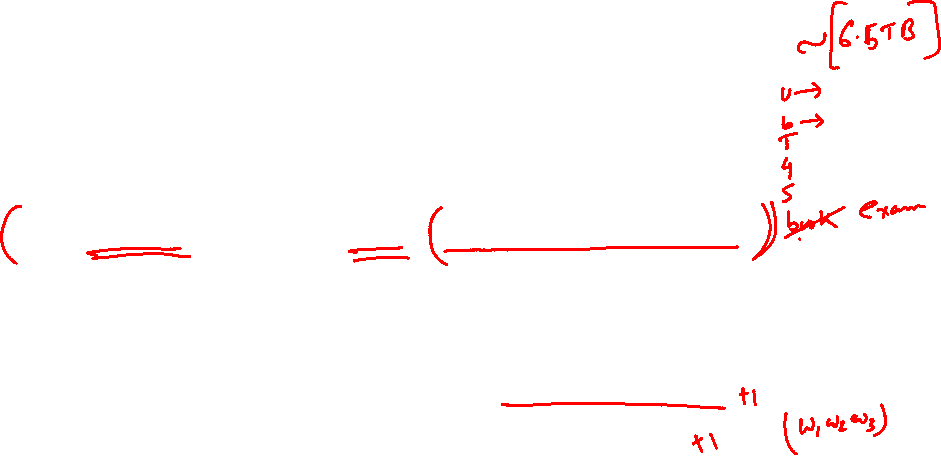 ~[6.5TB]
U →
b →
T
4
5
exam
+1
+1
(w₁ w₂ w₃)